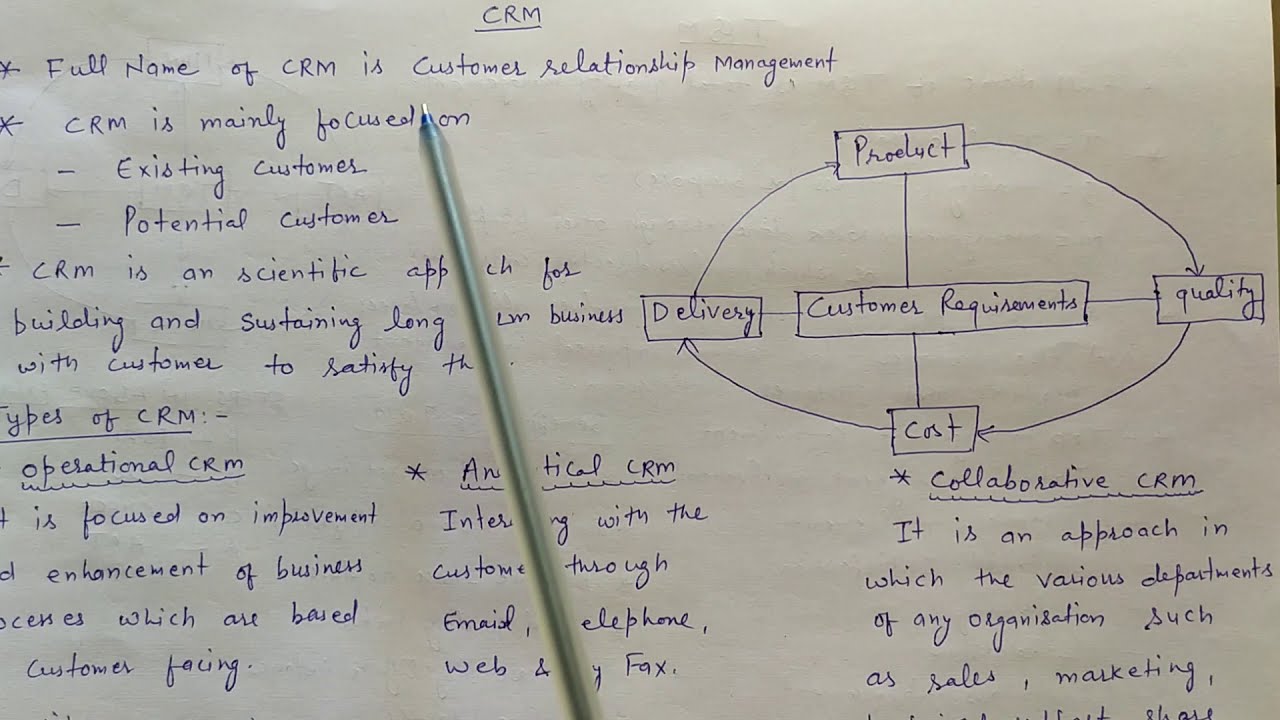 CRM
* Full Name of CRM is Customer relationship Management
* CRM is mainly focused on
- Existing customer
- Potential customer
CRM is an scientific for
building and sustaining long business
with customer to satisfy
Product
Delivery
Customer Requirements
quality
Cost
Types of CRM:-
operational CRM
is focused on improvement
enhancement of business
which are based
customer facing.
* CRM
with the
through
Email,
web & Fax.
* Collaborative CRM
It is an approach in
which the various departments
of any organisation such
as sales, marketing,
share